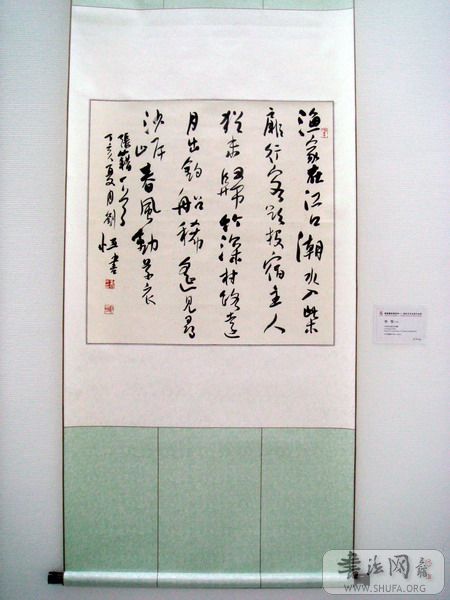 漁家在江口潮水入柴
扉行客欲投宿主人
猶未歸竹深村路遠
月出釣船稀遙見尋
沙岸春風動草衣
張籍一首
丁亥夏月劉恒書
書法网
WWW.SHUFA.ORG